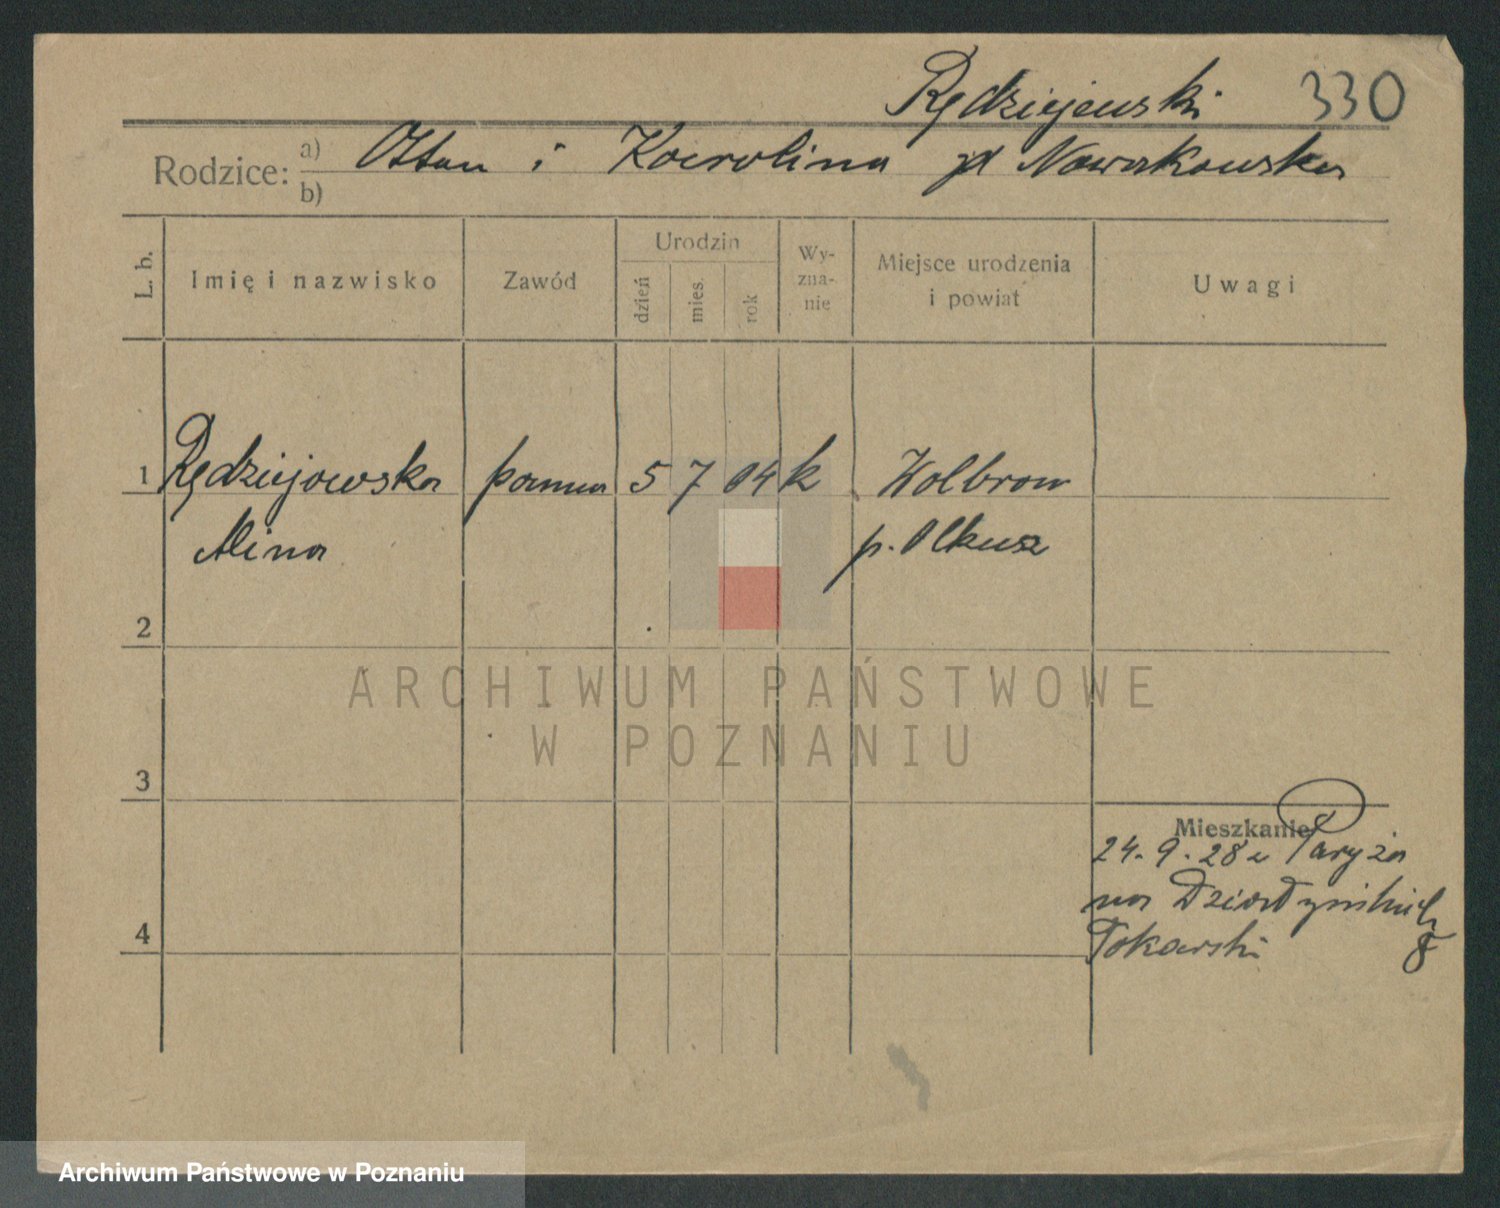 Rędziejewski 330
Rodzice: a) Otton i Karolina zd Nowakowska
b)
L. b.
Imię i nazwisko
Zawód
Urodzin
dzień
mies.
rok
Wy-
zna-
nie
Miejsce urodzenia
i powiat
Uwagi
1 Rędziejowska panna 5 7 04 k Wolbrom
Alina p. Olkusz
2
ARCHIWUM PAŃSTWOWE
W POZNANIU
3
Mieszkanie
24.9.28 z Paryża
na Działyńskich
Tokarski 8
4
Archiwum Państwowe w Poznaniu